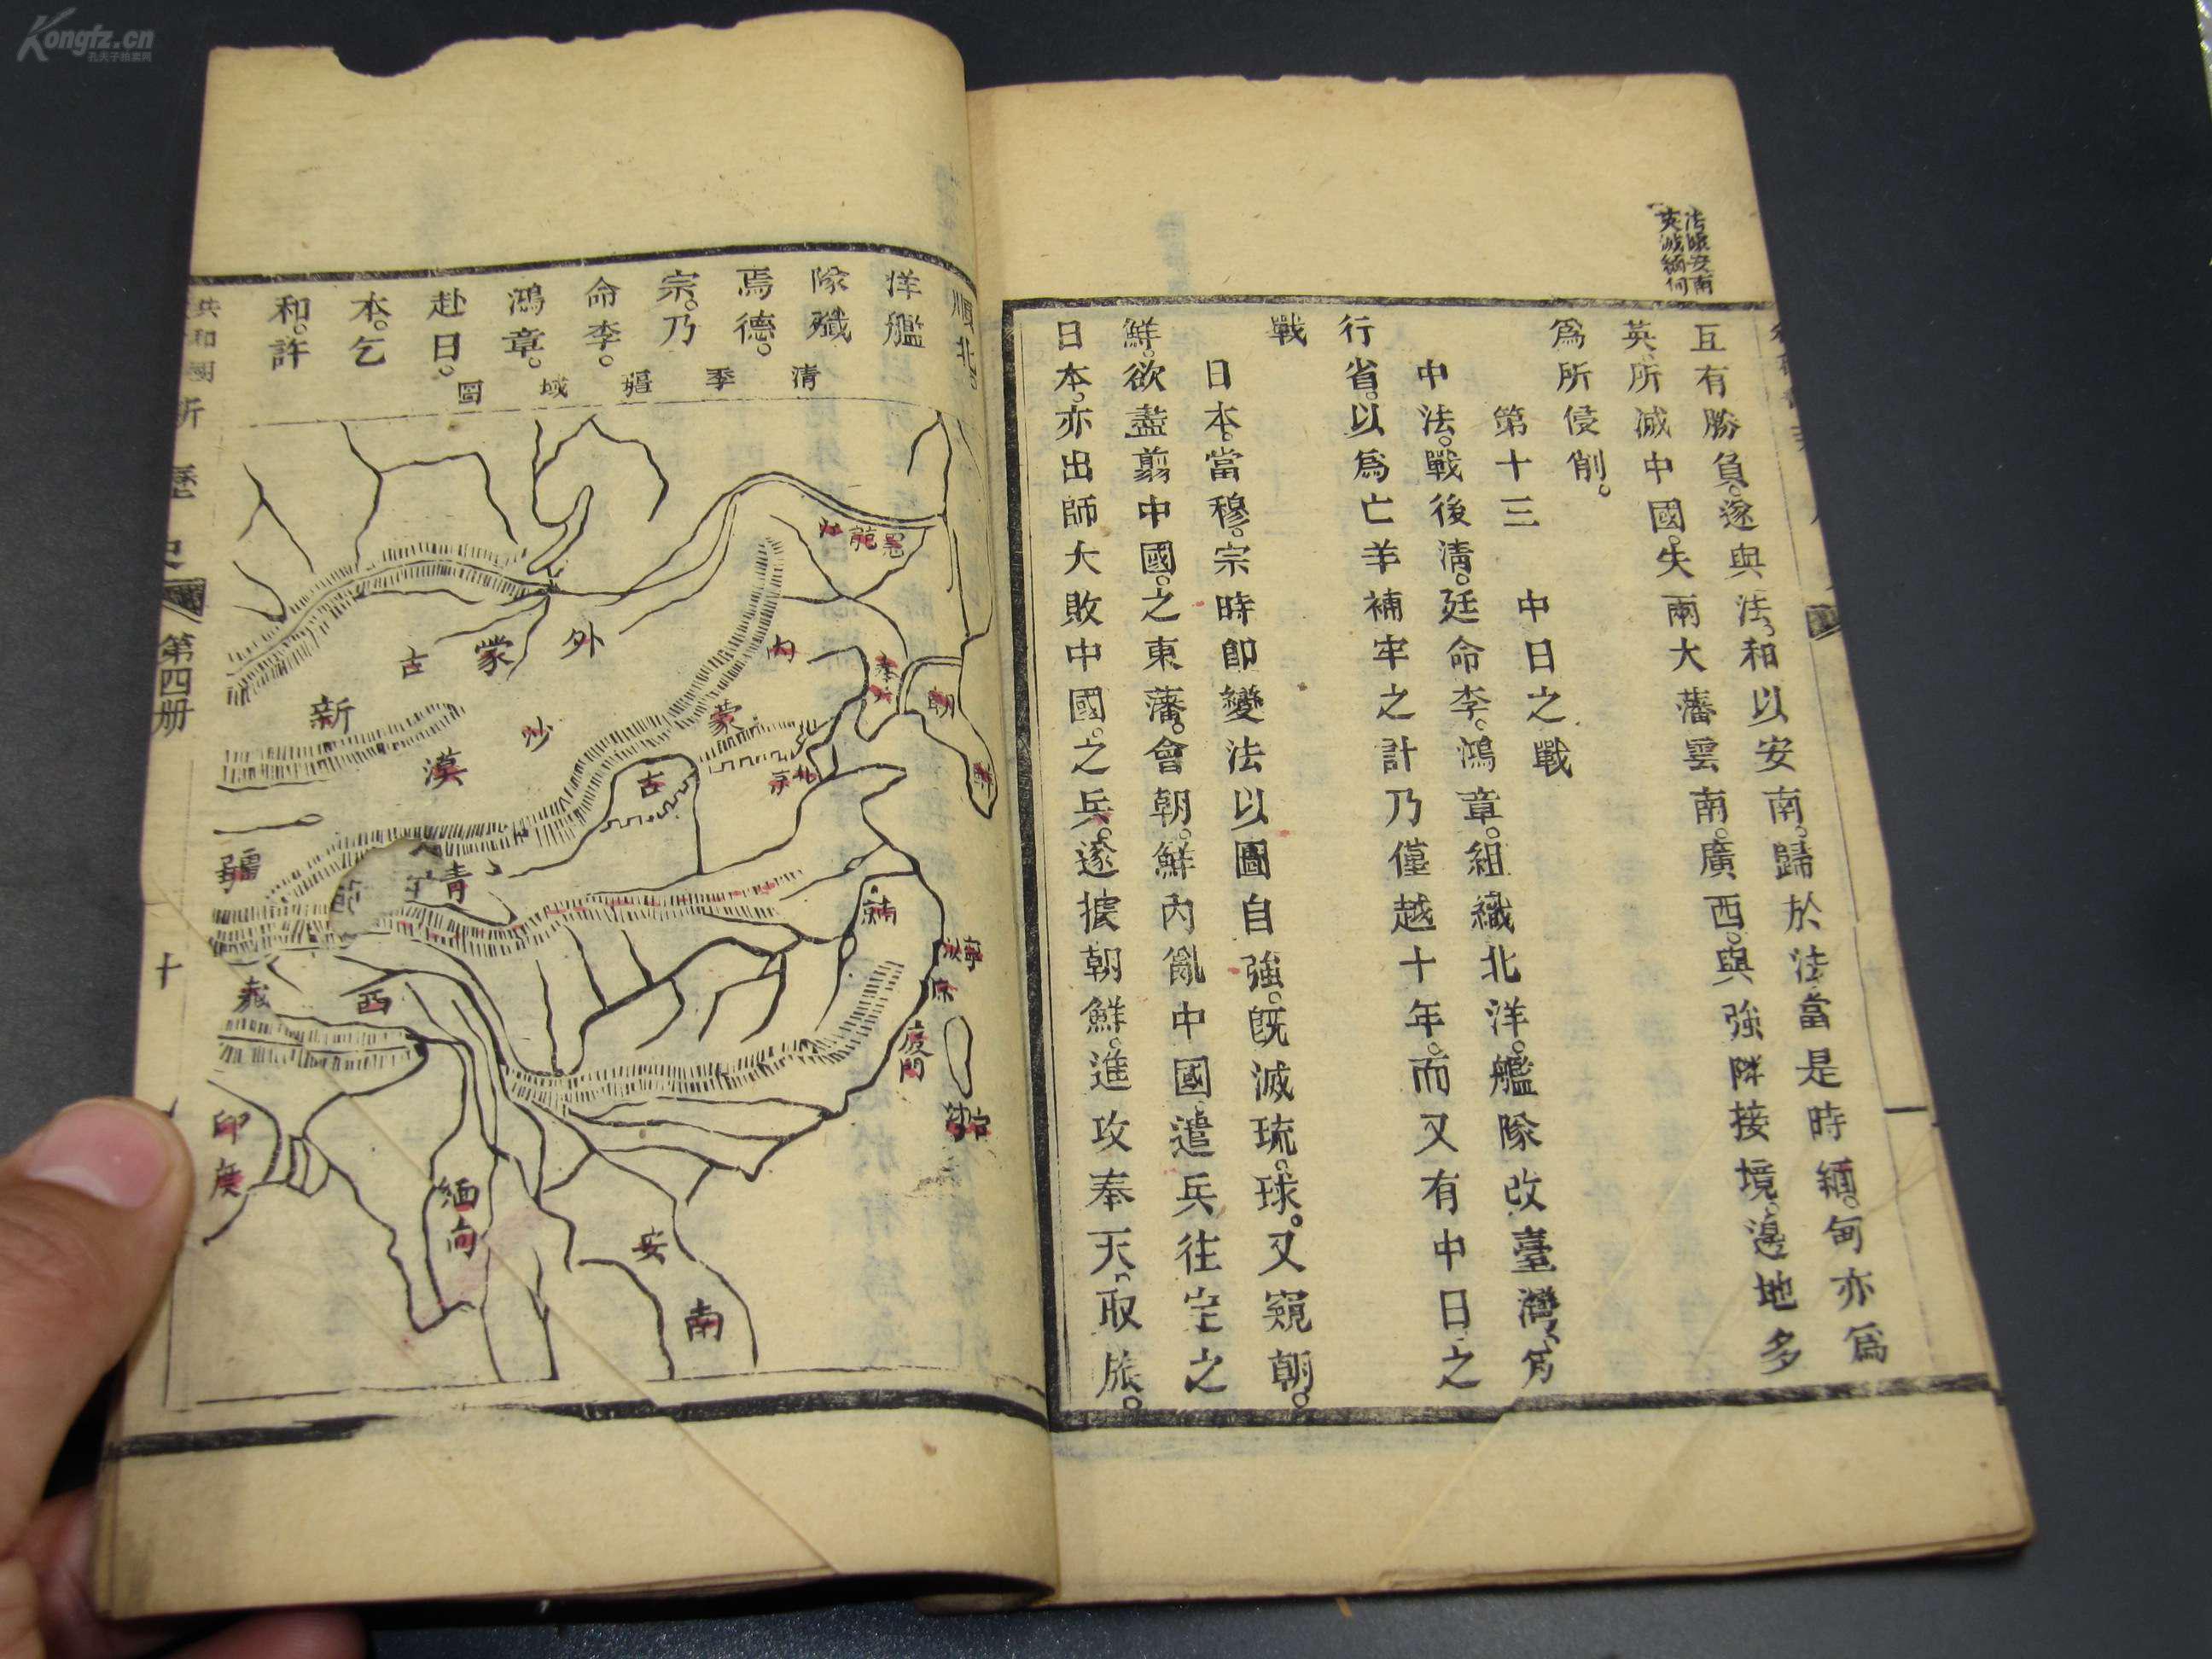 Kongfz.cn
法佔安南
英滅緬甸
互有勝負。遂與法和以安南。歸於法當是時緬。甸亦爲
英所滅中國。失兩大藩雲南。廣西。與強隣接境。邊地多
爲所侵削。
第十三 中日之戰
中法。戰後淸。廷命李。鴻章。組織北洋。艦隊改臺灣。爲
行省。以爲亡羊補牢之計乃僅越十年。而又有中日之
戰
日本。當穆。宗時卽變法以圖自強。旣滅琉。球。又窺朝。
鮮。欲盡翦中國。之東藩。會朝。鮮內亂中國遣兵往定之
日本。亦出師大敗中國。之兵。遂據朝鮮。進攻奉天取旅。
順北。
洋艦
隊殲
焉德。
宗。乃
命李。
鴻章。
赴日。
本。乞
和。許
淸季疆域圖
黑龍江
外蒙古
內蒙古
新疆
沙漠
奉天
朝鮮
北京
青
南京
寧波
廈門
台灣
西藏
印度
緬甸
安南
共和國新歷史
第四册
十